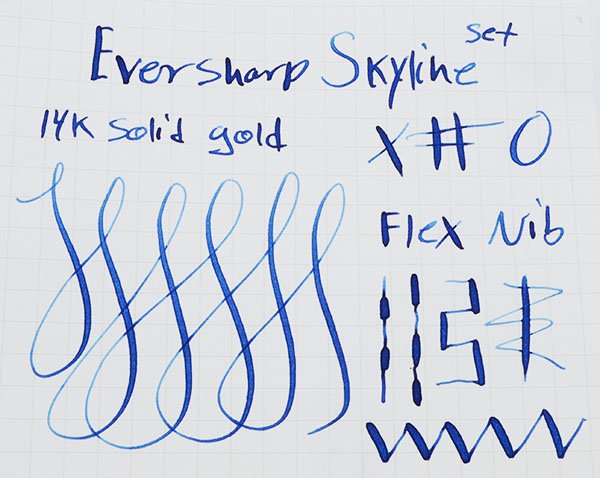 Eversharp Skyline set
14K solid gold
X # O
Flex Nib